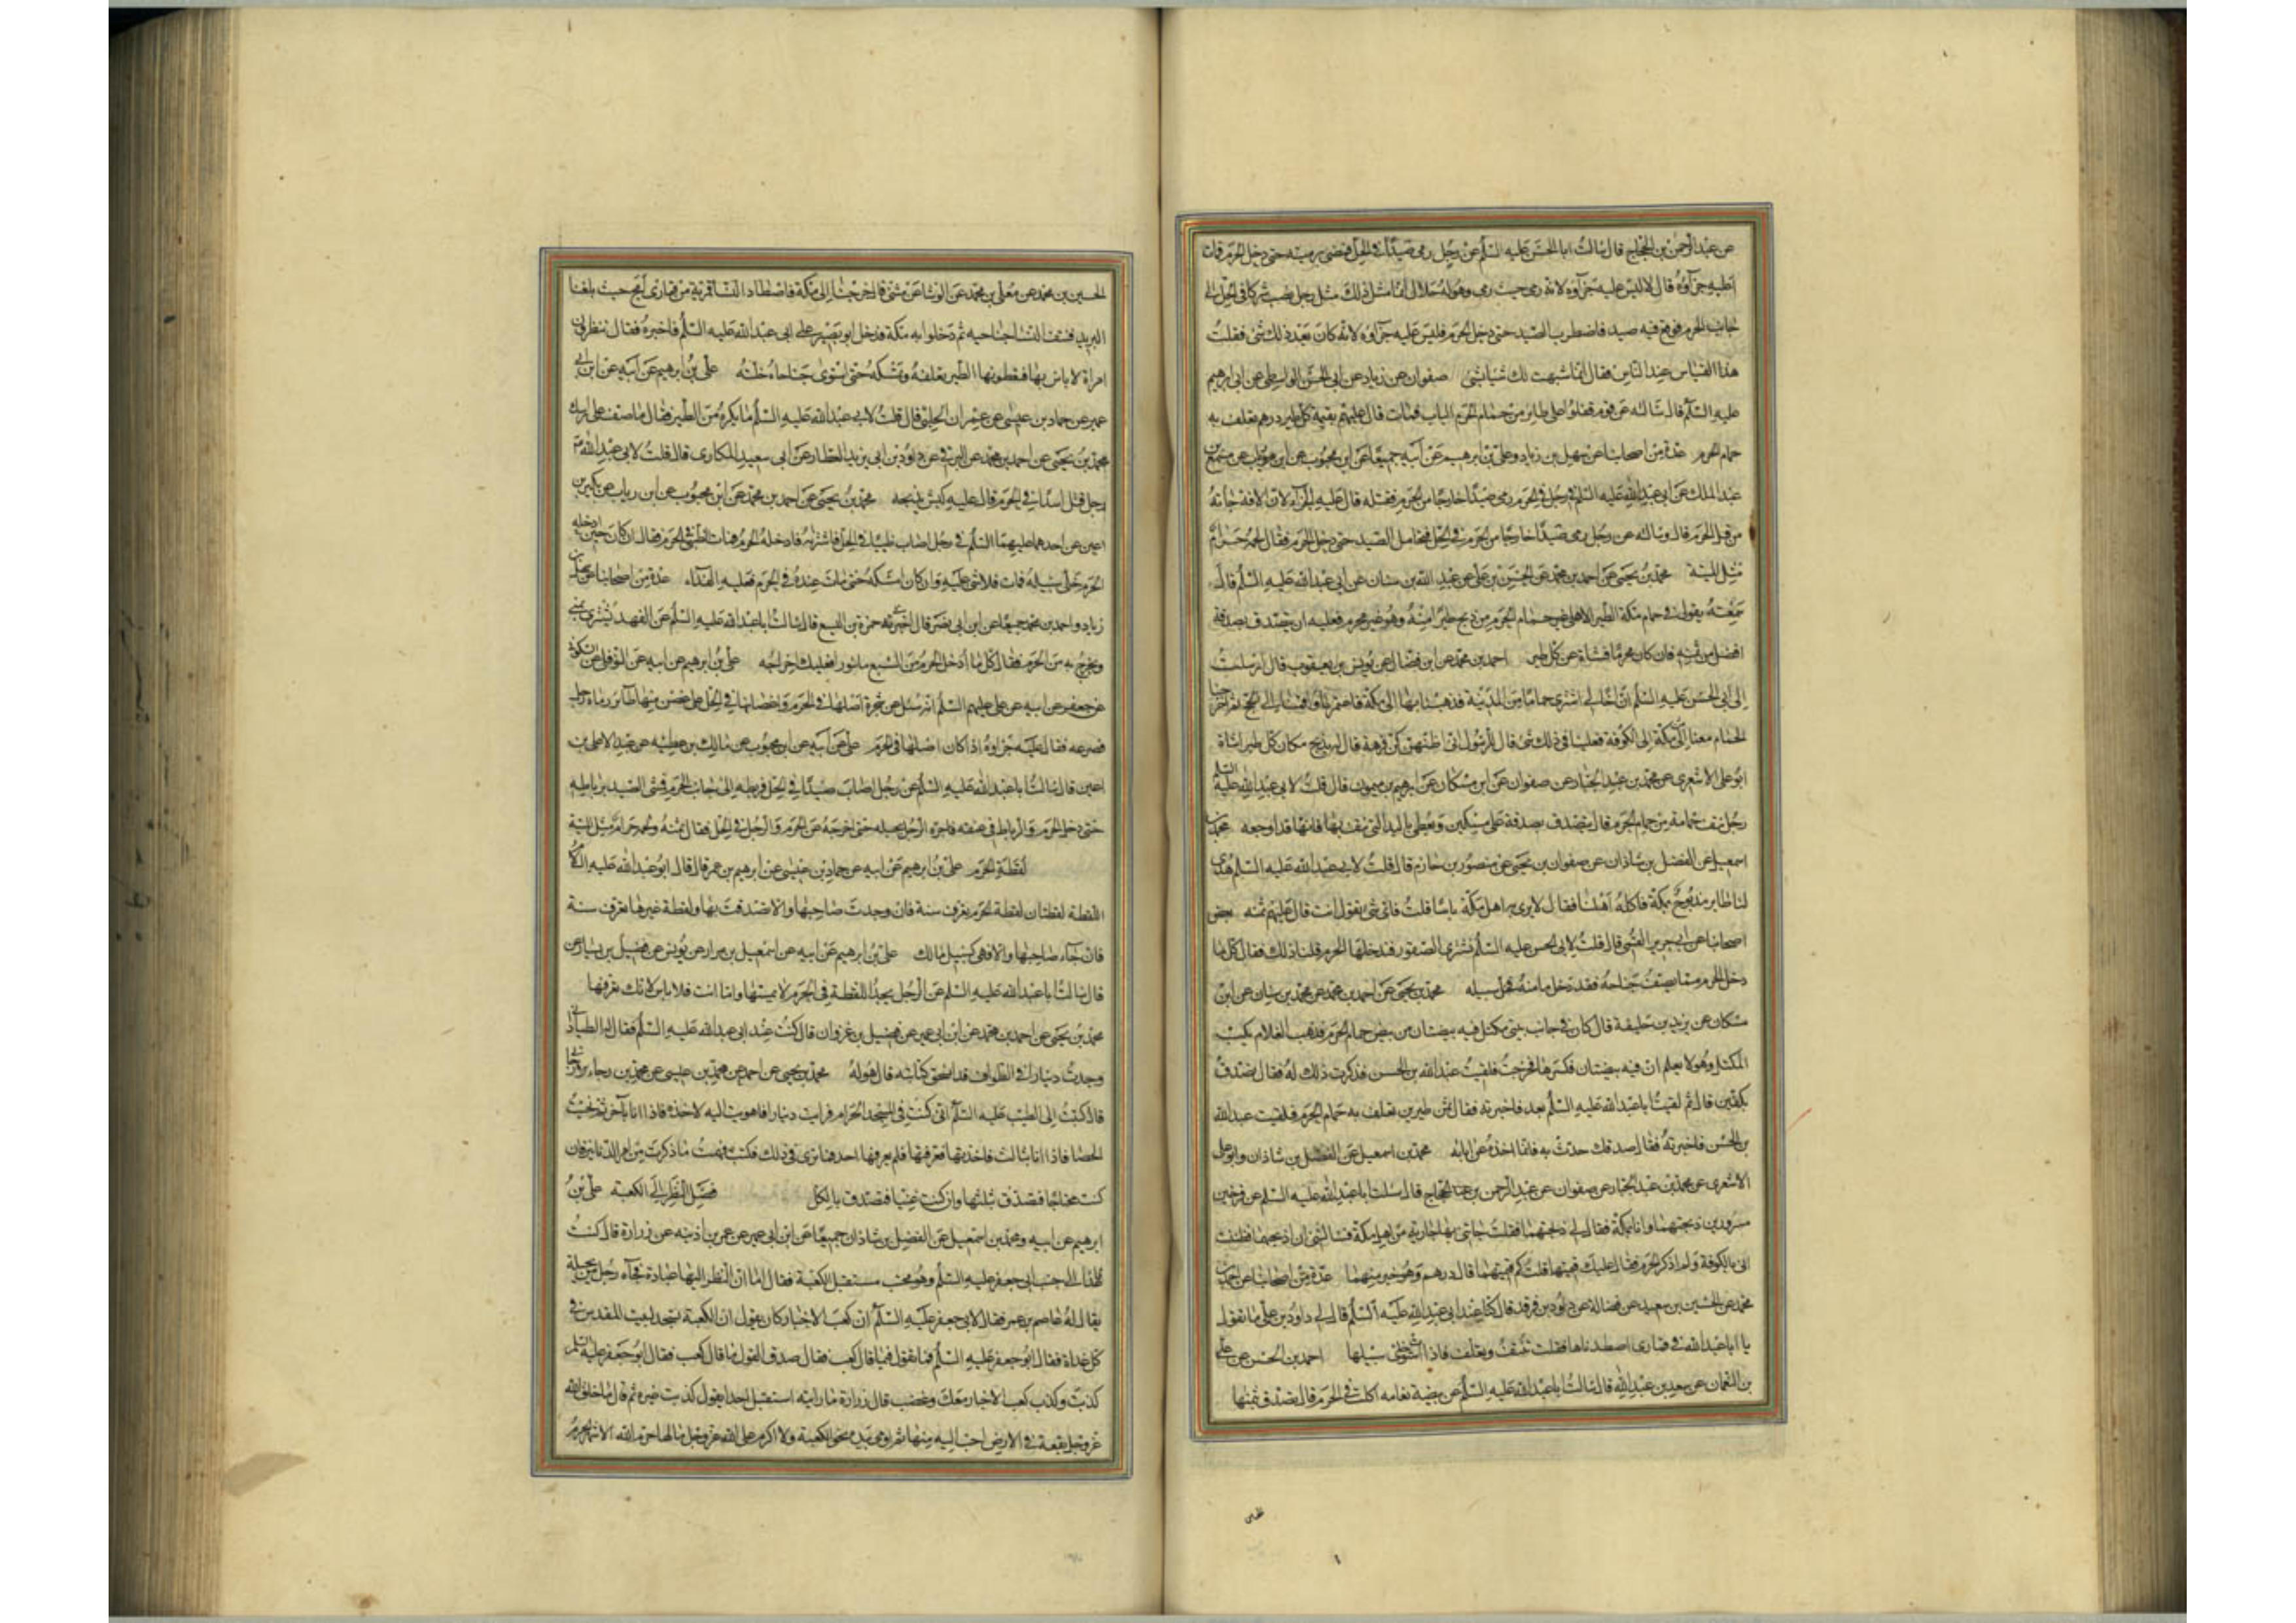 عن عبد الرحمن بن الحجاج قال سالت ابا الحسن عليه السلم عن رجل رمى صيدا في الحل فمضى برميته حتى دخل الحرم فمات
اعليه جزآؤه قال لا ليس عليه جزآؤه لانه رمى حيث رمى وهو له حلال انما مثل ذلك مثل رجل نصب شركا في الحل الى
جانب الحرم فوقع فيه صيد فاضطرب الصيد حتى دخل الحرم فليس عليه جزآؤه لانه كان بعد ذلك شئ فقلت
هذا القياس عند الناس فقال انما شبهت لك شيا بشئ صفوان عن زياد عن ابى الحسن الواسطى عن ابى ابرهيم
عليه السلم قال سالته عن قوم قفلوا على طاير من حمام الحرم الباب فمات قال عليهم بقيمة كل طير درهم يعلف به
حمام الحرم عدة من اصحابنا عن سهل بن زياد وعلى بن ابرهيم عن ابيه جميعا عن ابن محبوب عن ابن رئاب عن مسمع بن
عبد الملك عن ابى عبد الله عليه السلم في رجل في الحرم رمى صيدا خارجا من الحرم فقتله قال عليه الجزآء لان الافة جاته
من قبل الحرم قال وسالته عن رجل رمى صيدا خارجا من الحرم في الحل فتحامل الصيد حتى دخل الحرم فقال لحمه حرام
مثل الميتة محمد بن يحيى عن احمد بن محمد عن الحسن بن على عن عبد الله بن سنان عن ابى عبد الله عليه السلم قال
سمعته يقول في حمام مكة الطير الاهلى غير حمام الحرم من ذبح طيرا منه وهو غير محرم فعليه ان يتصدق بصدقة
افضل من ثمنه فان كان محرما فشاة عن كل طير احمد بن محمد عن ابن فضال عن يونس بن يعقوب قال ارسلت
الى ابى الحسن عليه السلم ان اخا لى اشترى حماما من المدينة فذهبنا بها الى مكة فاعتمرنا واقمنا الى الحج ثم اخرجنا
الحمام معنا من مكة الى الكوفة فعلينا في ذلك شئ قال للرسول انى اظنهن كن فرهة قال له يذبح مكان كل طير شاة
ابو على الاشعرى عن محمد بن عبد الجبار عن صفوان عن ابن مسكان عن ابرهيم بن ميمون قال قلت لابى عبد الله عليه السلم
رجل نتف حمامة من حمام الحرم قال يتصدق بصدقة على مسكين ويعطى باليد التى نتف بها فانها قد اوجعه محمد بن
اسمعيل عن الفضل بن شاذان عن صفوان بن يحيى عن منصور بن حازم قال قلت لابى عبد الله عليه السلم اهدى
لنا طاير مذبوح بمكة فاكله اهلنا فقال لا يرى به اهل مكة باسا قلت فاى شئ يقول انت قال عليهم ثمنه بعض
اصحابنا عن ابى جرير القمى قال قلت لابى الحسن عليه السلم نشترى الصقور فندخلها الحرم فلنا ذلك فقال كل ما
دخل الحرم مما يصف جناحه فقد دخل مامنه فخل سبيله محمد بن يحيى عن احمد بن محمد عن محمد بن سنان عن ابن
مسكان عن يزيد بن خليفة قال كان في جانب بيتى مكتل فيه بيضتان من بيض حمام الحرم فذهب الغلام يكب
المكتل وهو لا يعلم ان فيه بيضتان فكسرهما فخرجت فلقيت عبد الله بن الحسن فذكرت ذلك له فقال تصدق
بكفين قال ثم لقيت ابا عبد الله عليه السلم بعد فاخبرته فقال ثمن طيرين تعلف به حمام الحرم فلقيت عبد الله
بن الحسن فاخبرته فقال صدقك حدث به فانما اخذه عن ابائه محمد بن اسمعيل عن الفضل بن شاذان وابو على
الاشعرى عن محمد بن عبد الجبار عن صفوان عن عبد الرحمن بن الحجاج قال سالت ابا عبد الله عليه السلم عن فرخين
مسرولين ذبحتهما وانا بمكة فقال لى لم ذبحتهما فقلت جاتنى بهما جارية من اهل مكة فسالتنى ان اذبحهما فظننت
انى بالكوفة ولم اذكر الحرم فقال عليك قيمتها قلت كم قيمتهما قال درهم وهو خير منهما عدة من اصحابنا عن احمد بن
محمد عن الحسين بن سعيد عن فضالة عن داود بن فرقد قال كنا عند ابى عبد الله عليه السلم قال لى داود بن على ما تقول
يا ابا عبد الله في قمارى اصطدناها فقلت تنتف وتعلف فاذا استوت خلى سبيلها احمد بن الحسن عن على
بن النعمان عن سعيد بن عبد الله قال سالت ابا عبد الله عليه السلم عن بيضة نعامه اكلت في الحرم قال تصدق بثمنها
الحسين بن محمد عن معلى بن محمد عن الوشا عن مثنى قال خرجنا الى مكة فاصطاد النسا قمرية من قمارى امج حيث بلغنا
البريد فنتف النسا جناحيه ثم دخلوا به مكة فدخل ابو بصير على ابى عبد الله عليه السلم فاخبره فقال تنظرون
امراة لا باس بها فيعطونها الطير تعلفه وتمسكه حتى استوى جناحاه خلته على بن ابرهيم عن ابيه عن ابن ابى
عمير عن حماد بن عيسى عن عمران الحلبى قال قلت لابى عبد الله عليه السلم ما يكره من الطير فقال ما صف على راسك
محمد بن يحيى عن احمد بن محمد عن البرقى عن داود بن ابى يزيد العطار عن ابى سعيد المكارى قال قلت لابى عبد الله
رجل قتل اسدا في الحرم قال عليه كبش يذبحه محمد بن يحيى عن احمد بن محمد عن ابن محبوب عن ابن رياب عن بكير بن
اعين عن احدهما عليهما السلم في رجل اصاب ظبيا في الحل فاشتراه فادخله الحرم فمات الظبى في الحرم فقال ان كان حين ادخله
الحرم خلى سبيله فمات فلا شئ عليه وان كان امسكه حتى مات عنده في الحرم فعليه الفدآء عدة من اصحابنا عن سهل بن
زياد واحمد بن محمد جميعا عن ابن ابى نصر قال اخبرنى حمزة بن اليسع قال سالت ابا عبد الله عليه السلم عن الفهد يشترى بمنى
ويخرج به من الحرم فقال كل ما ادخل الحرم من السبع ماسورا فعليك اخراجه على بن ابرهيم عن ابيه عن النوفلى عن السكونى
عن جعفر عن ابيه عن على عليهم السلم انه سئل عن شجرة اصلها في الحرم واغصانها في الحل على غصن منها طآئر رماه رجل
فصرعه فقال عليه جزاؤه اذا كان اصلها في الحرم على عن ابيه عن ابن محبوب عن مالك بن عطيه عن عبد الاعلى بن
اعين قال سالت ابا عبد الله عليه السلم عن رجل اصاب صيدا في الحل فربطه الى جانب الحرم فمشى الصيد برباطه
حتى دخل الحرم والرباط في عنقه فاجتره الرجل بحبله حتى اخرجه من الحرم والرجل في الحل فقال ثمنه ولحمه حرام مثل الميتة
لقطة الحرم على بن ابرهيم عن ابيه عن حماد بن عيسى عن ابرهيم بن عمر قال قال ابو عبد الله عليه السلم
اللقطة لقطتان لقطة الحرم يعرف سنة فان وجدت صاحبها والا تصدقت بها ولقطة غيرها تعرف سنة
فان جآء صاحبها والا فهى كسبيل مالك على بن ابرهيم عن ابيه عن اسمعيل بن مرار عن يونس عن فضيل بن يسار عن
قال سالت ابا عبد الله عليه السلم عن الرجل يجد اللقطة في الحرم لا يمسها واما انت فلا باس لانك تعرفها
محمد بن يحيى عن احمد بن محمد عن ابن ابى عمير عن فضيل بن غزوان قال كنت عند ابى عبد الله عليه السلم فقال له الطيار انى
وجدت دينارا في الطواف قد انسحق كتابته قال هو له محمد بن يحيى عن احمد عن محمد بن عيسى عن محمد بن رجاء الارجانى
قال كتبت الى الطيب عليه السلم انى كنت في المسجد الحرام فرايت دينارا فاهويت اليه لاخذه فاذا انا بآخر ثم نحيت
الحصا فاذا انا بثالث فاخذتها فعرفتها فلم يعرفها احد فما ترى في ذلك فكتب فهمت ما ذكرت من امر الدنانير فان
كنت محتاجا فتصدق بثلثها وان كنت غنيا فتصدق بالكل فضل النظر الى الكعبة على بن
ابرهيم عن ابيه ومحمد بن اسمعيل عن الفضل بن شاذان جميعا عن ابن ابى عمير عن عمر بن اذينه عن زرارة قال كنت
قاعدا الى جنب ابى جعفر عليه السلم وهو محتب مستقبل الكعبة فقال اما ان النظر اليها عبادة فجآءه رجل من بجيلة
يقال له عاصم بن عمر فقال لابى جعفر عليه السلم ان كعب الاحبار كان يقول ان الكعبة تسجد لبيت المقدس في
كل غداة فقال ابو جعفر عليه السلم فما تقول فيما قال كعب فقال صدق القول ما قال كعب فقال ابو جعفر عليه السلم
كذبت وكذب كعب الاحبار معك وغضب قال زرارة ما رايته استقبل احدا بقول كذبت غيره ثم قال ما خلق الله
عز وجل بقعة في الارض احب اليه منها ثم اومى بيده نحو الكعبة ولا اكرم على الله عز وجل منها لها حرم الله الاشهر الحرم